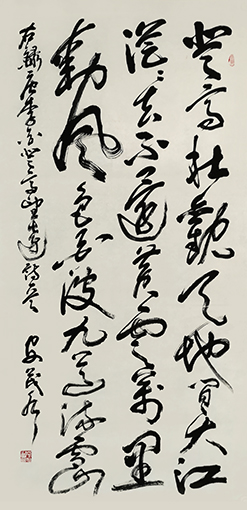 登高壯觀天地間大江
茫茫去不還黃雲萬里
動風色白波九道流雪山
右錄唐李白登高望遠詩意